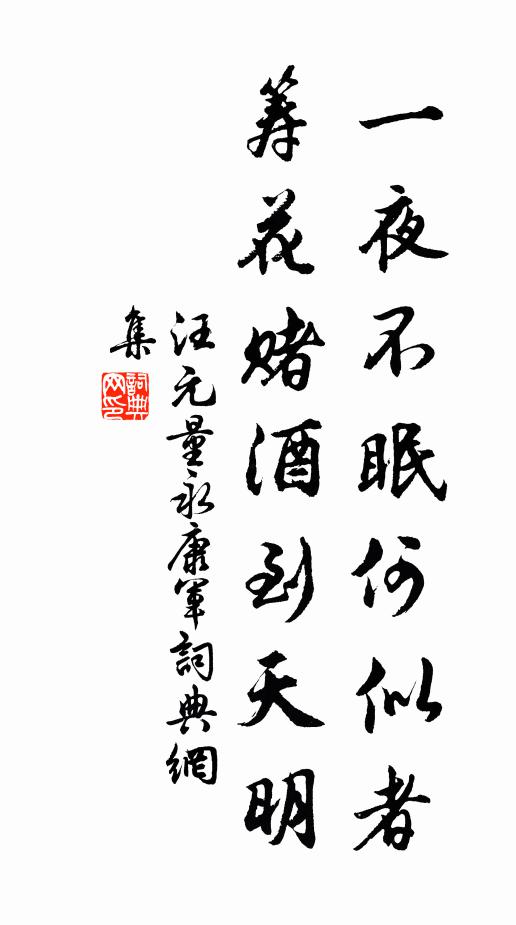 一夜不眠何似者
筹花赌酒到天明
汪元量永康军詞典網
集
詞典网印